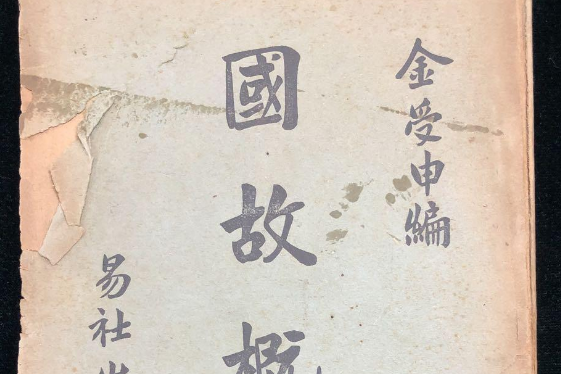 金受申編
國故概
易社出